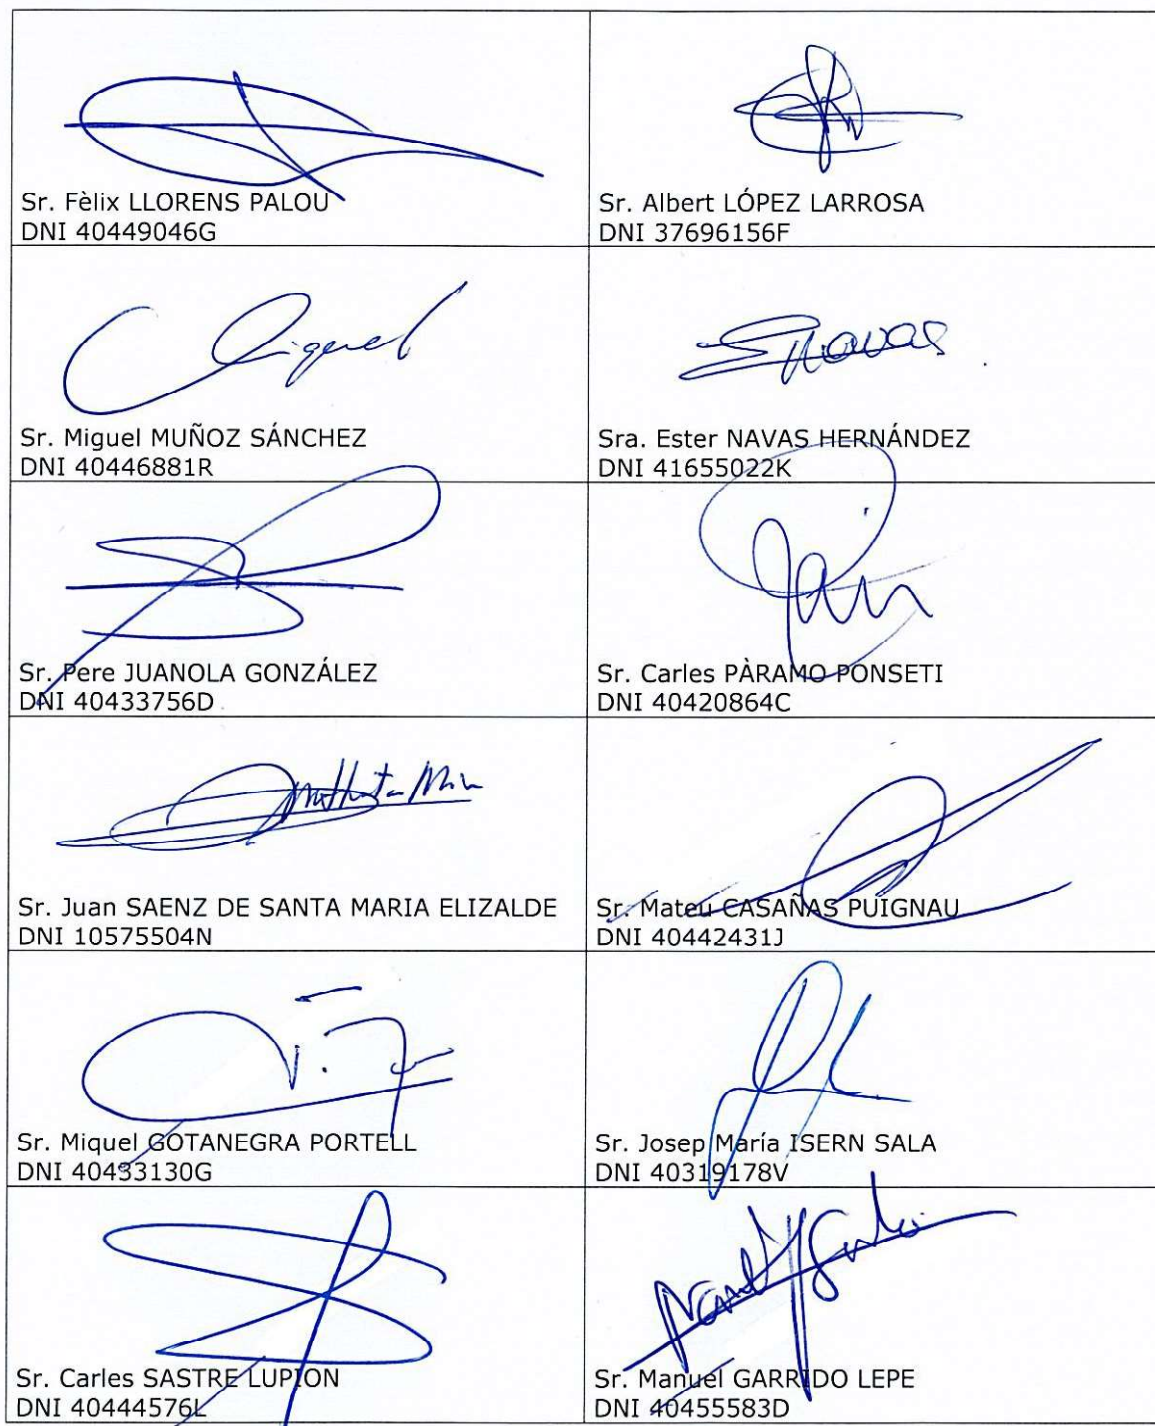 Sr. Fèlix LLORENS PALOU
DNI 40449046G
Sr. Albert LÓPEZ LARROSA
DNI 37696156F
Miguel
Sr. Miguel MUÑOZ SÁNCHEZ
DNI 40446881R
ENavas
Sra. Ester NAVAS HERNÁNDEZ
DNI 41655022K
Sr. Pere JUANOLA GONZÁLEZ
DNI 40433756D
Sr. Carles PÀRAMO PONSETI
DNI 40420864C
Sr. Juan SAENZ DE SANTA MARIA ELIZALDE
DNI 10575504N
Sr. Mateu CASAÑAS PUIGNAU
DNI 40442431J
Sr. Miquel GOTANEGRA PORTELL
DNI 40433130G
Sr. Josep María ISERN SALA
DNI 40319178V
Sr. Carles SASTRE LUPION
DNI 40444576L
Sr. Manuel GARRIDO LEPE
DNI 40455583D